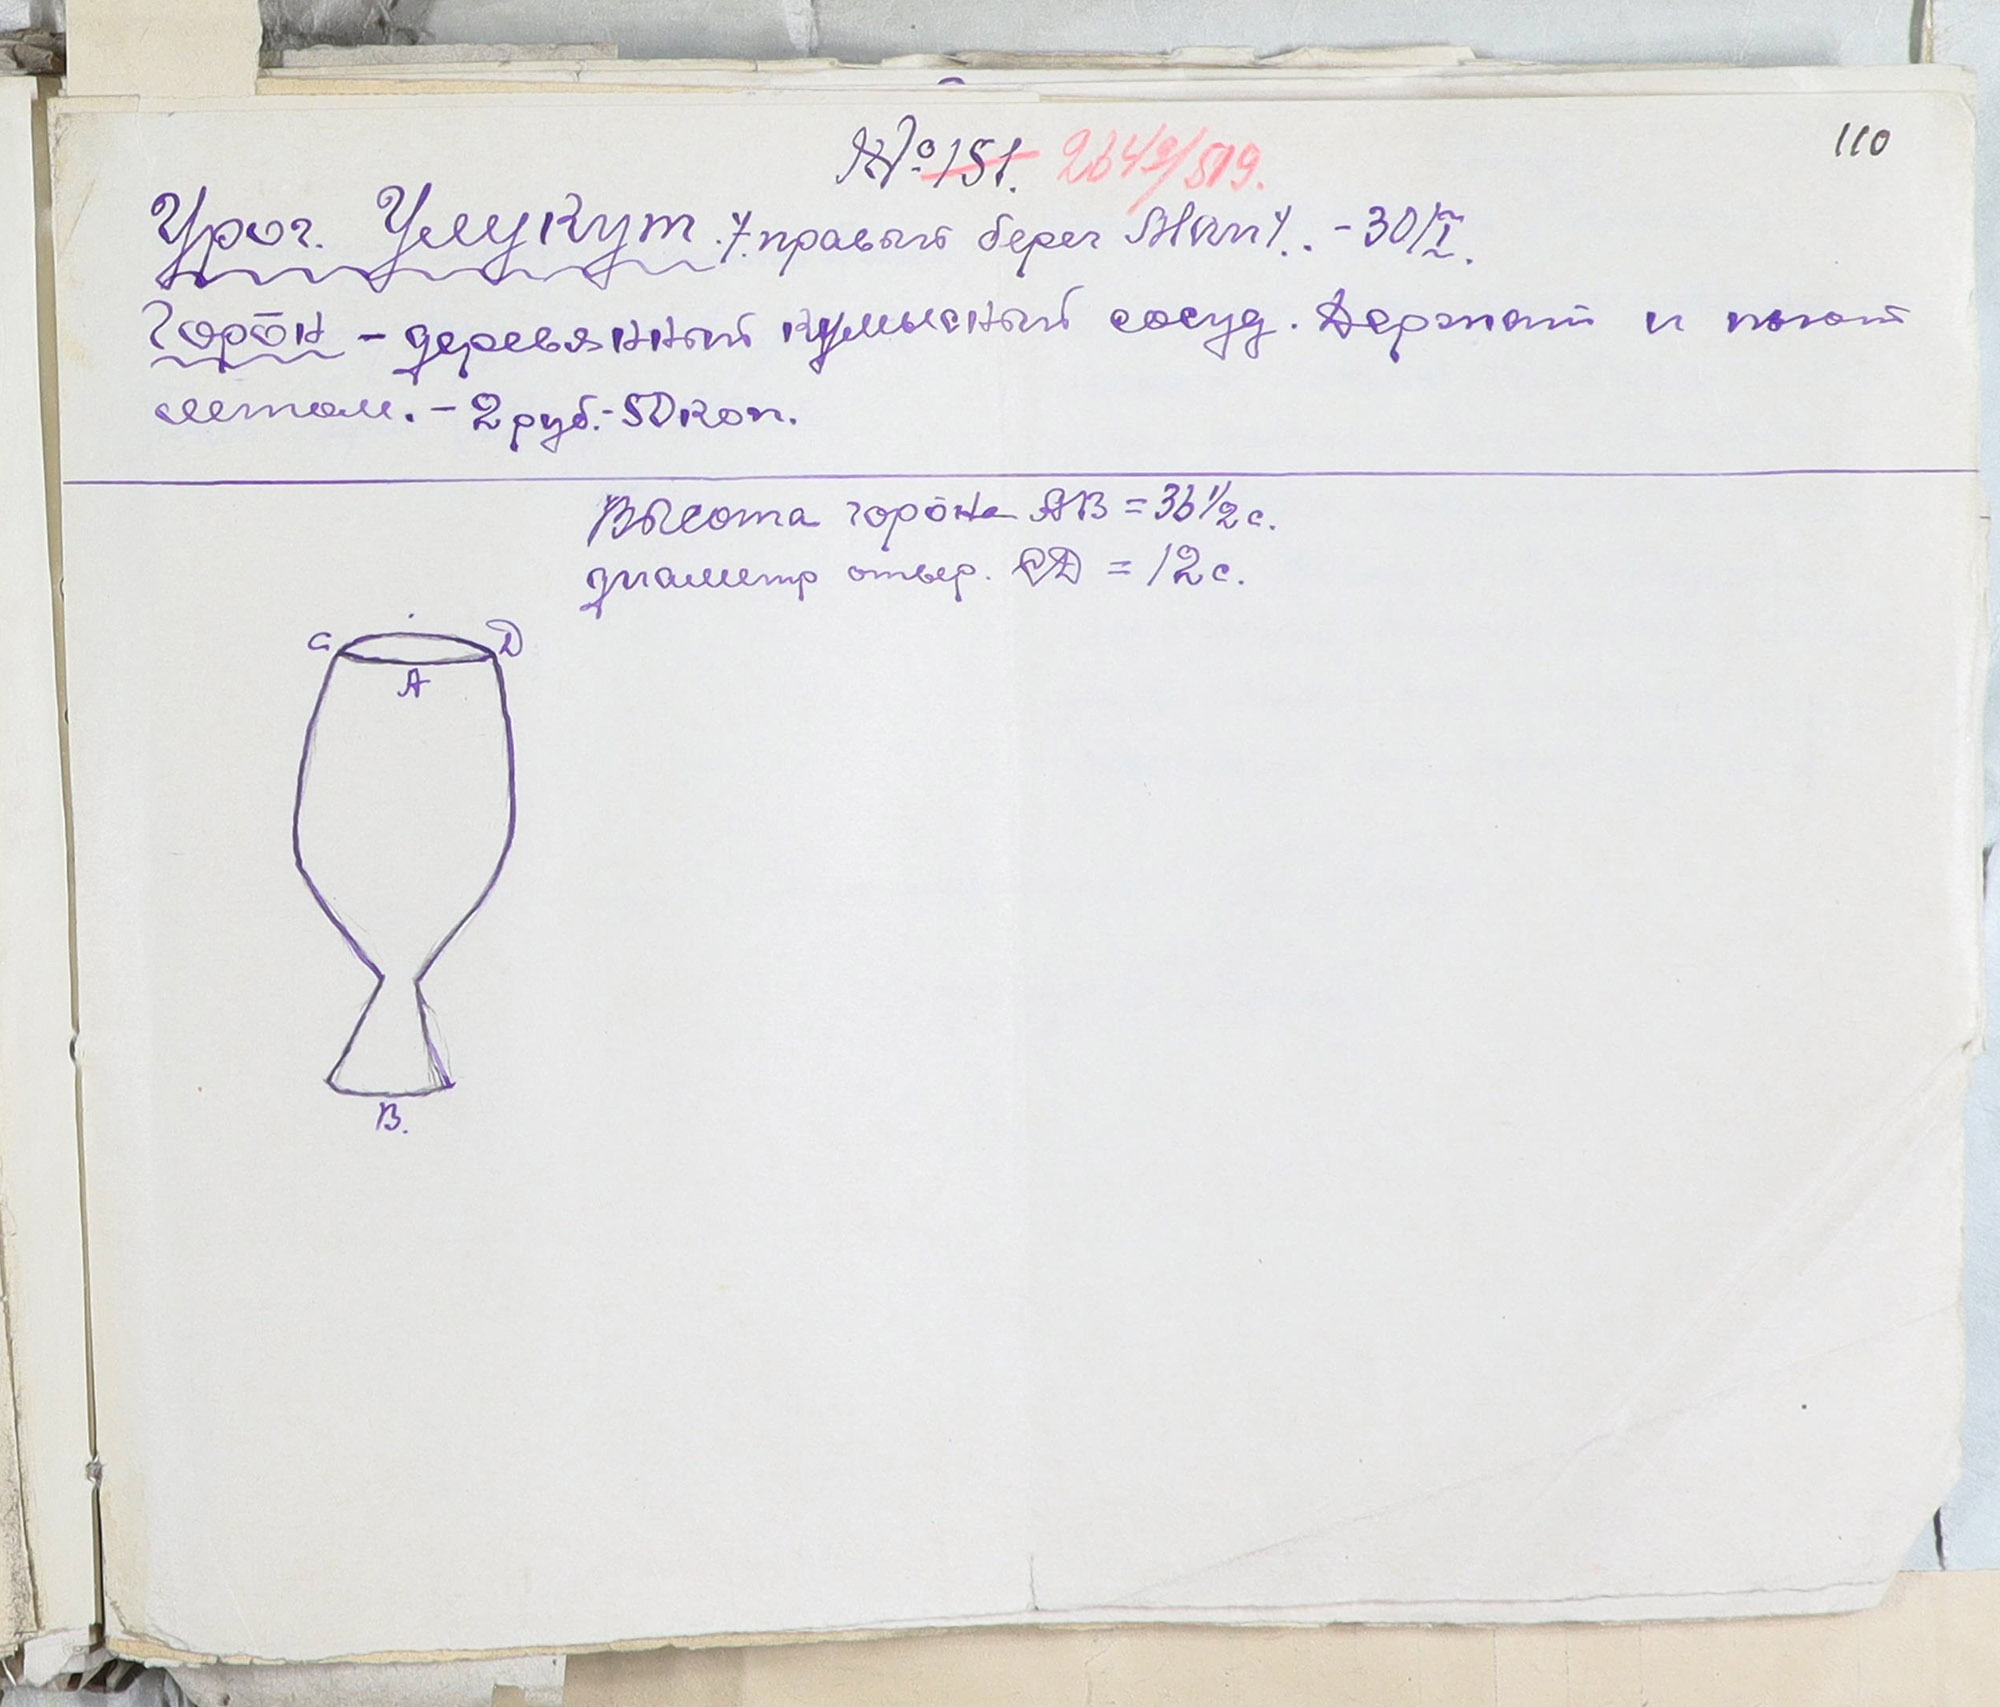 110
№ 151. 2649/519.
Уроч. Улукут. /. правый берег Яны/. - 30/I.
Чорōн - деревянный кумысный сосуд. Держат и пьют
летом. - 2 руб. - 50 коп.
Высота чорōна AB = 36 1/2 с.
диаметр отвер. CD = 12 с.
C D
A
B.